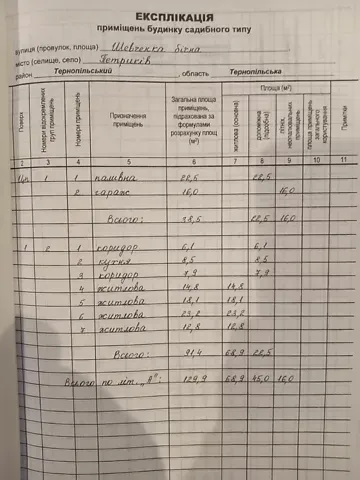 ЕКСПЛІКАЦІЯ
приміщень будинку садибного типу
вулиця (провулок, площа) Шевченка бічна
місто (селище, село) Петриків
район Тернопільський , область Тернопільська
Поверх Номери відокремлених груп приміщень Номери приміщень Призначення приміщень Загальна площа приміщень, підрахована за формулами розрахунку площ (м²) Площа (м²) житлова (основна) допоміжна (підсобна) літніх, неопалювальних приміщень площа приміщень загального користування Примітки
2 3 4 5 6 7 8 9 10 11
1 1 паливна 22,5 22,5
2 гараж 16,0 16,0
Всього: 38,5 22,5 16,0
1 2 1 коридор 6,1 6,1
2 кухня 8,5 8,5
3 коридор 7,9 7,9
4 житлова 14,8 14,8
5 житлова 18,1 18,1
6 житлова 23,2 23,2
7 житлова 12,8 12,8
Всього: 91,4 68,9 22,5
Всього по літ. "А": 129,9 68,9 45,0 16,0